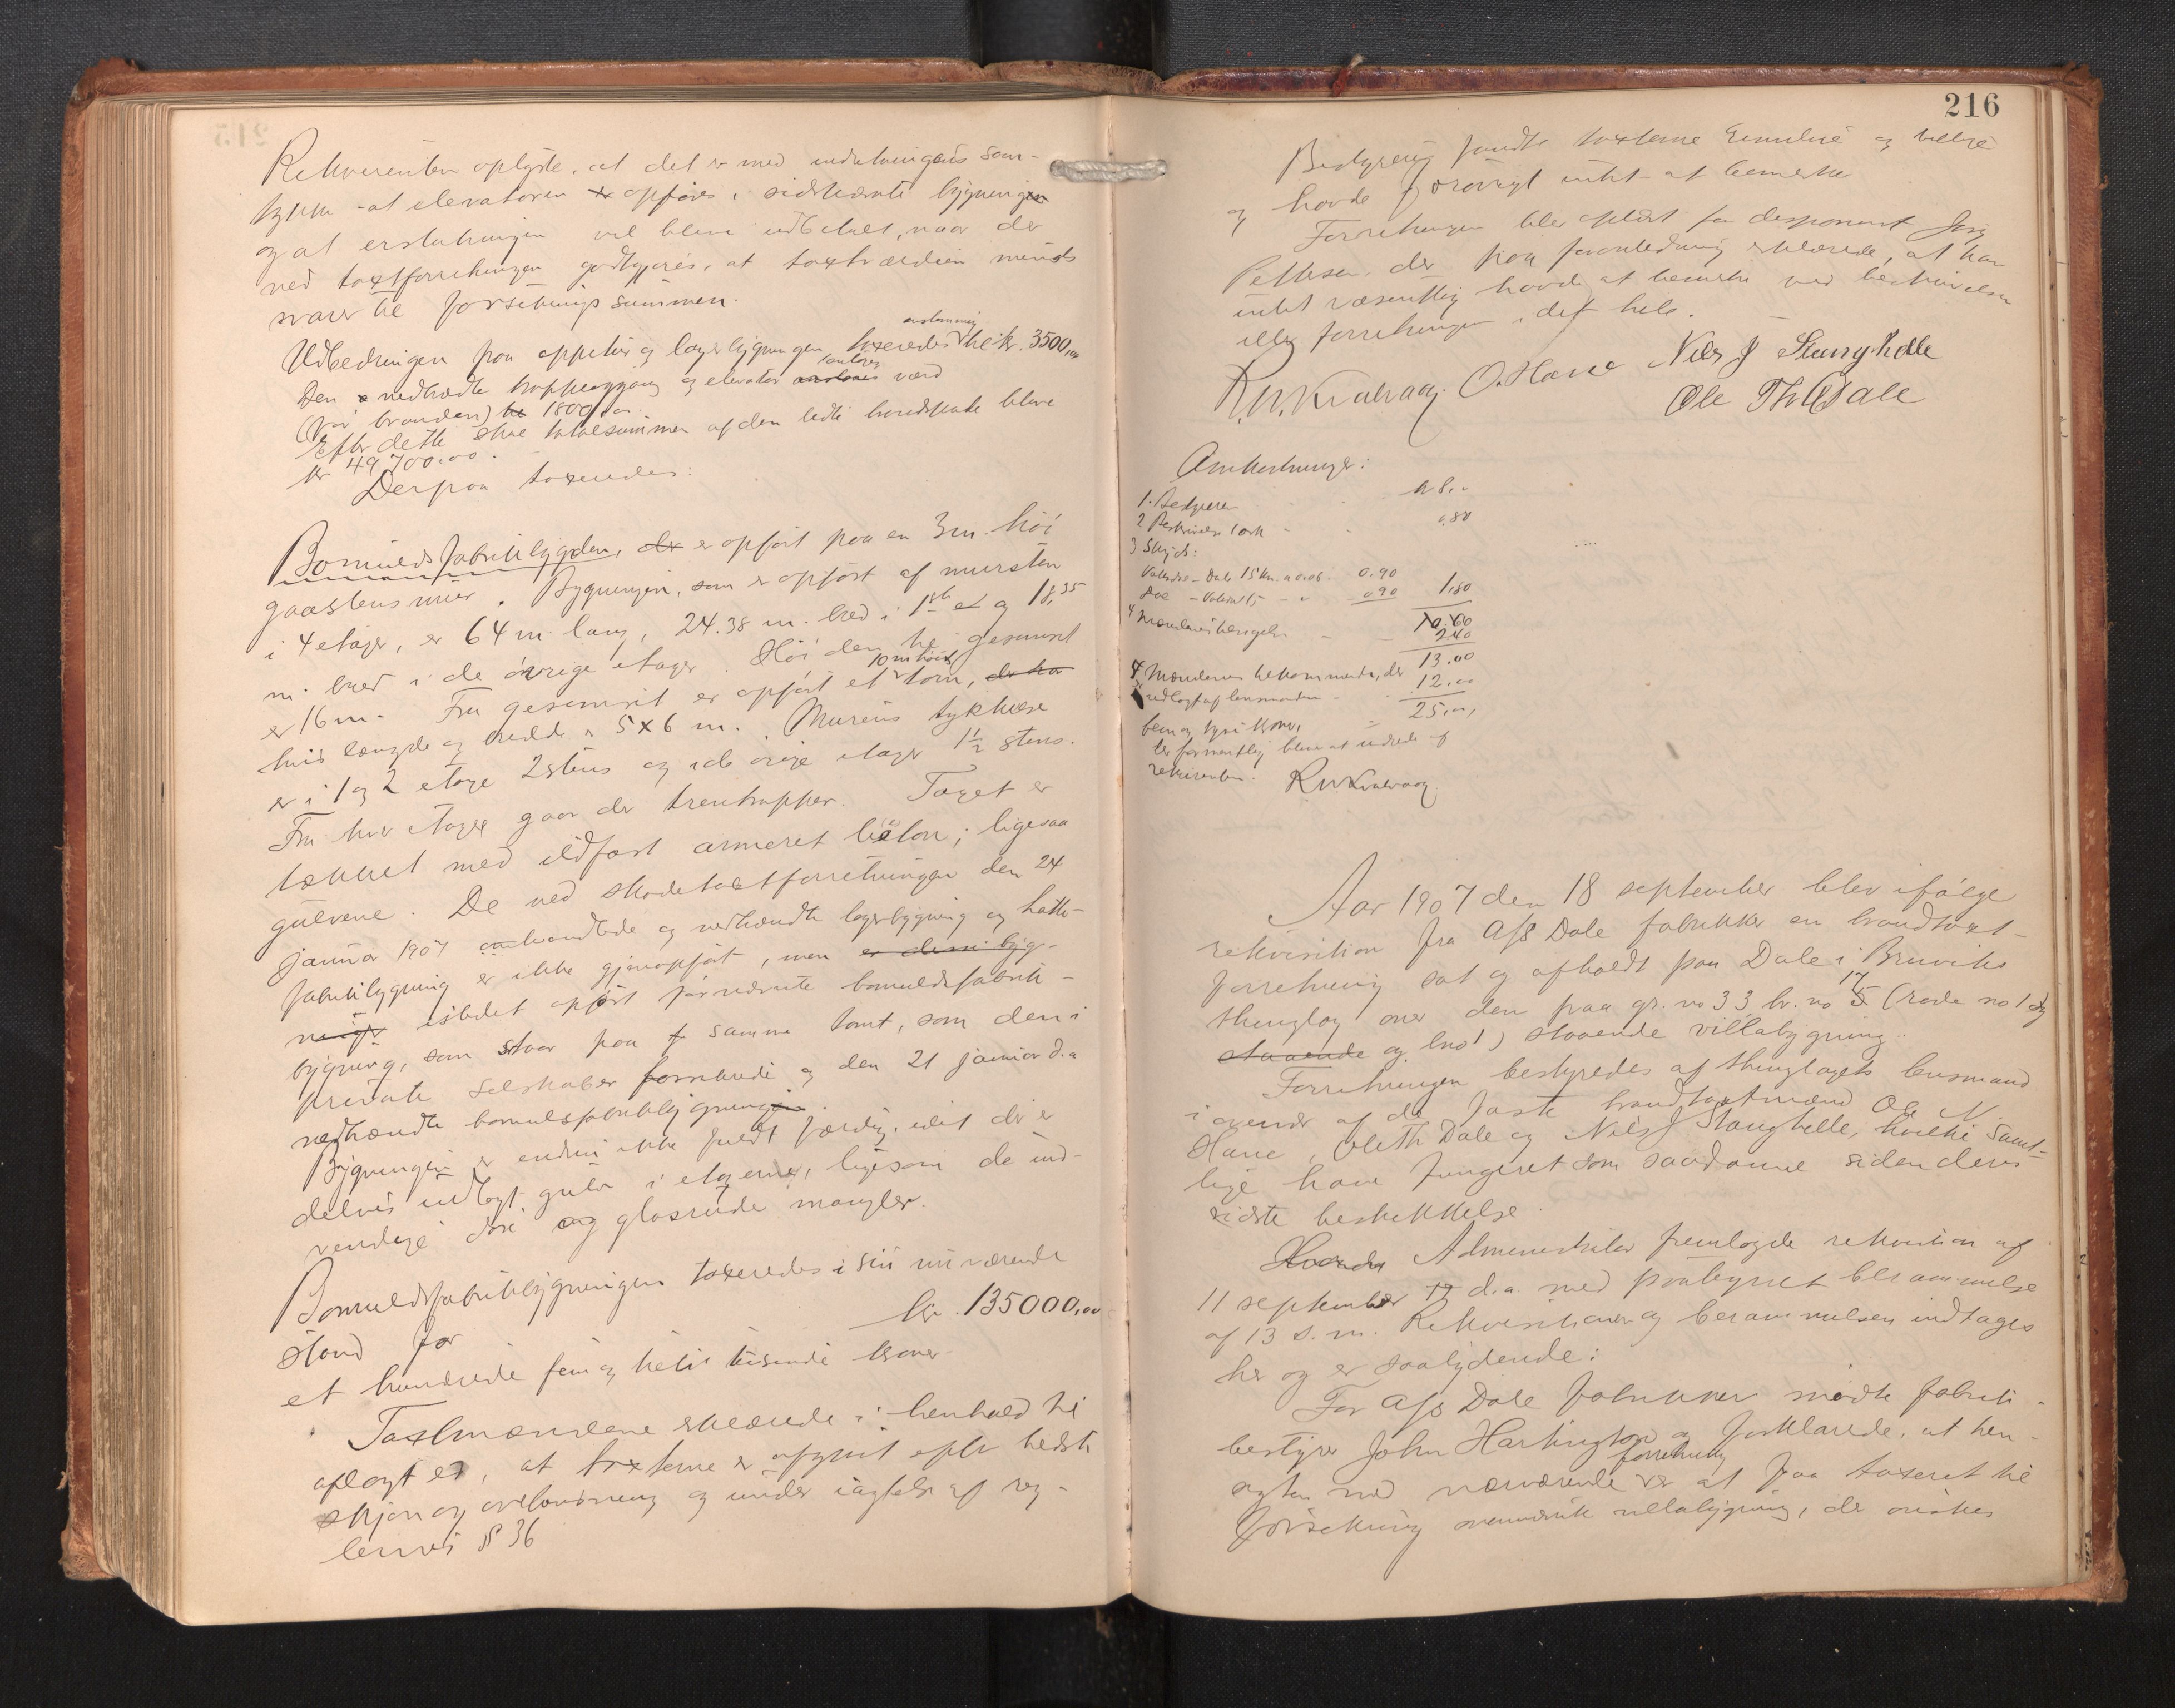 Rekvirenten oplyste, at det er med indretningens sam-
tykke at elevatoren opføres i sidstnævnte bygning
og at erstatningen vil blive udbetalt, naar der
ved taxtforretningen godtgjøres, at taxtværdien mindst
svarer til forsikringssummen.
Udbedringen paa appretur og lagerbygningen taxeredes enstemmig til kr. 3500,00
Den nedbrændte trappeopgang og elevator antages værd
(før branden) 1800,00.
Efter dette skal totalsummen af den ledte brandskade blive
kr 49 700.00.
Derpaa taxeredes:
Bomuldsfabrikbygden, der er opført paa en 3 m. høi
graastensmur. Bygningen, som er opført af mursten
i 4 etager, er 64 m. lang, 24.38 m. bred i 1ste et og 18,35
m. bred i de øvrige etager. Høiden til gesimset
er 16 m. Fra gesimset er opført et 10 m høit torn, der har
hvis længde og bredde er 5 x 6 m. Murens tykkelse
er i 1 og 2 etage 2 stens og i de øvrige etager 1½ stens.
Fra hver etage gaar der trentrapper. Taget er
tækket med ildfast armeret beton; ligesaa
gulvene. De ved skadetaxtforretningen den 24
januar 1907 omhandlede og nedbrændte lagerbygning og hatte-
fabrikbygning er ikke gjenopført, men er denne byg-
isledet opført førnævnte bomuldsfabrik-
bygning, som staar paa samme tomt, som den i
private selskaber forsikrede og den 21 januar d.a
nedbrændte bomulsfabrikbygning.
Bygningen er endnu ikke fuldt færdig, idet der er
delvis udlagt gulv i etagerne, ligesom de ind-
vendige døre og glasrude mangler.
Bomuldsfabrikbygningen taxeredes i sin nuværende
stand for kr. 135000,00
et hundrede fem og tretti tusende kroner.
Taxtmændene erklærede i henhold til
aflagt ed, at taxterne er afgivet efter bedste
skjøn og overbevisning og under iagttagelse af reg-
lernes § 36
216
Bestyreren fandt taxterne rimelige og billige
og havde forøvrigt intet at bemerke
Forretningen blev oplæst for disponent Jørg
Pettersen, der paa foranledning erklærede, at han
intet væsentlig havde at bemerke ved beskrivelsen
eller forretningen i det hele.
R.W. Kvalvaag. O. Hane Nils J Stanghelle
Ole Th Dale
Omkostninger:
1. Bestyreren kr 8.00
2 Beskrivelse 1 ark 0,80
3 Skyds:
Vaksdal - Dale 15 km. a 0.06. 0.90
Dale - Vaksdal 0,90 1,80
10.60
4 2.40
13.00
Mændenes tilkommende, der 12.00
udlagt af lensmanden 25,00,
fem og tyve kroner,
blive at udrede af
rekvirenten. R W Kvalvaag.
Aar 1907 den 18 september blev ifølge
rekvisition fra A/S Dale fabrikker en brandtaxt-
forretning sat og afholdt paa Dale i Bruviks
thinglag over den paa gr. no 33 br. no 17 5 (rode no 1 og
staaende og lno 1) staaende villabygning.
Forretningen bestyredes af thinglagets lensmand
i overvær af de faste brandtaxtmænd Ole N.
Hane, Ole Th Dale og Nils J Stanghelle, hvilke samt-
lige have fungeret som saadanne siden deres
sidste beskikkelse.
Administrator fremlagde rekvisition af
11 september d.a. med paategnet berammelse
af 13 s. m. Rekvisitionen og berammelsen indtages
her og er saalydende:
For A/S Dale fabrikker mødte fabrik-
bestyrer John Harkington og forklarede, at hen-
sigten med nærværende forretning er at faa taxeret til
forsikring ovennævnte villabygning, der ønskes